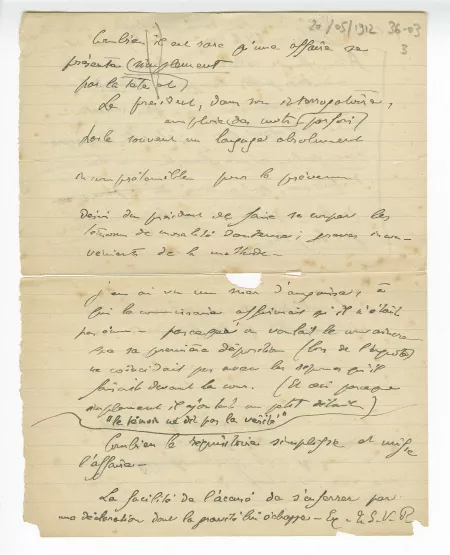 20/05/1912 36-03
3
Combien il est rare qu'une affaire se
présente (simplement
par la tête et)
Le président, dans son interrogatoire,
emploie (des mots parfois)
parle souvent un langage absolument
incompréhensible pour le prévenu
Désir du président de faire se couper les
témoins de moralité d'ordinaire, graves incon-
vénients de la méthode -
j'en ai vu un suer d'angoisse, à
qui le commissaire affirmait qu'il n'était
pas — parce que on voulait le convaincre
que sa première déposition (lors de l'enquête)
ne coïncidait pas avec les réponses qu'il
faisait devant la cour. (Et ceci parce que
simplement il ajoutait un petit détail)
"le témoin ne dit pas la vérité"
Combien le réquisitoire simplifie et
l'affaire -
La facilité de l'accusé de s'enferrer par
une déclaration dont la gravité lui échappe -